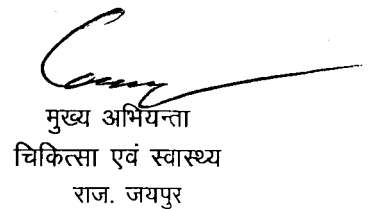 मुख्य अभियन्ता
चिकित्सा एवं स्वास्थ्य
राज. जयपुर